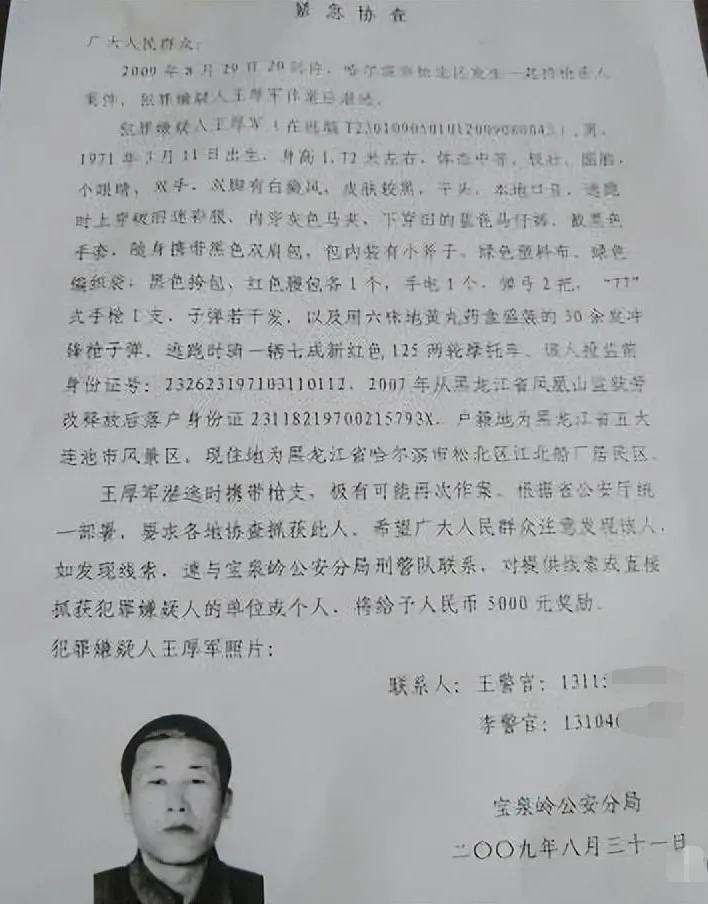 紧急协查
广大人民群众:
2009年8月29日20时许，哈尔滨市松北区发生一起持枪杀人
案件，犯罪嫌疑人王厚军作案后潜逃。
犯罪嫌疑人王厚军（在逃编，男，
1971年3月11日出生，身高1.72米左右，体态中等，圆脸，
小眼睛，双手、双脚有白癜风，皮肤较黑，平头，本地口音，逃跑
时上穿破旧迷彩服、内穿灰色马夹、下穿旧的蓝色马仔裤，戴黑色
手套，随身携带黑色双肩包，包内装有小斧子、绿色塑料布、绿色
编织袋；黑色挎包、红色腰包各1个，手电1个，弹弓2把，“77”
式手枪1支，子弹若干发，以及用六味地黄丸药盒盛装的30余发冲
锋枪子弹。逃跑时骑一辆七成新红色125两轮摩托车。该人投监前
身份证号：232623197103110112，2007年从黑龙江省凤凰山监狱劳
改释放后落户身份证23118219700215793X，户籍地为黑龙江省五大
连池市风景区，现住地为黑龙江省哈尔滨市松北区江北船厂居民区。
王厚军潜逃时携带枪支，极有可能再次作案。根据省公安厅统
一部署，要求各地协查抓获此人。希望广大人民群众注意发现该人，
如发现线索，速与宝泉岭公安分局刑警队联系，对提供线索或直接
抓获犯罪嫌疑人的单位或个人，将给予人民币5000元奖励。
犯罪嫌疑人王厚军照片：
联系人：王警官：1311
李警官：13104
宝泉岭公安分局
二〇〇九年八月三十一日